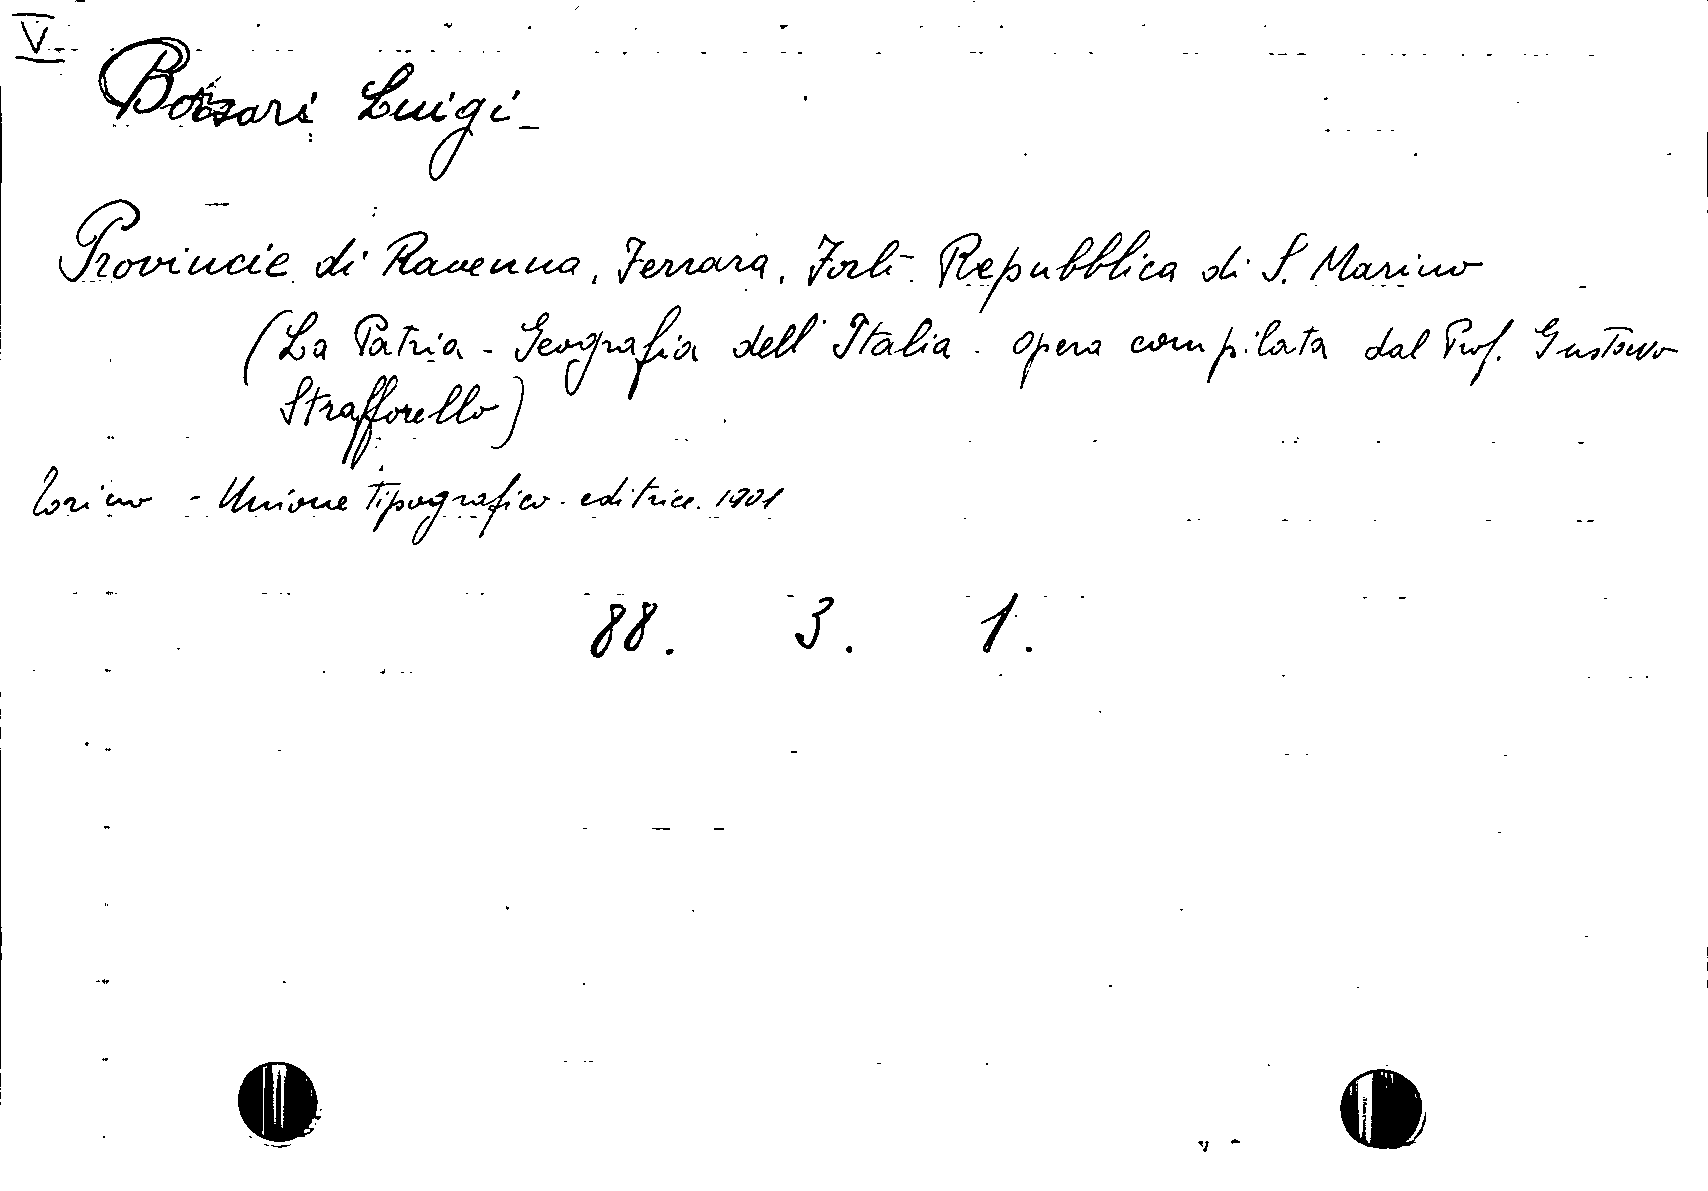 V
Borsari Luigi -
Provincie di Ravenna, Ferrara, Forlì - Repubblica di S. Marino
(La Patria - Geografia dell'Italia - opera compilata dal Prof. Gustavo
Strafforello)
Torino - Unione tipografico-editrice. 1901
88. 3. 1.